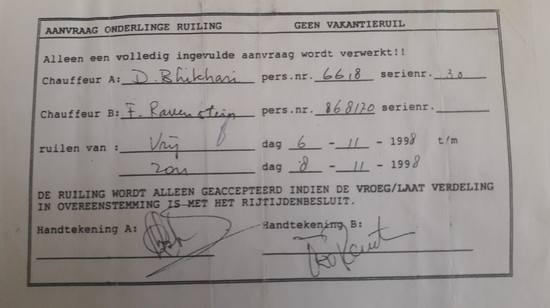 AANVRAAG ONDERLINGE RUILING GEEN VAKANTIERUIL
Alleen een volledig ingevulde aanvraag wordt verwerkt!!
Chauffeur A: D. Bhikhari pers.nr. 6618 serienr. 30
Chauffeur B: F. Ravenstein pers.nr. 868120 serienr.
ruilen van : Vrij dag 6 -11 - 1998 t/m
zon dag 8 -11 - 1998
DE RUILING WORDT ALLEEN GEACCEPTEERD INDIEN DE VROEG/LAAT VERDELING
IN OVEREENSTEMMING IS MET HET RIJTIJDENBESLUIT.
Handtekening A: Handtekening B: